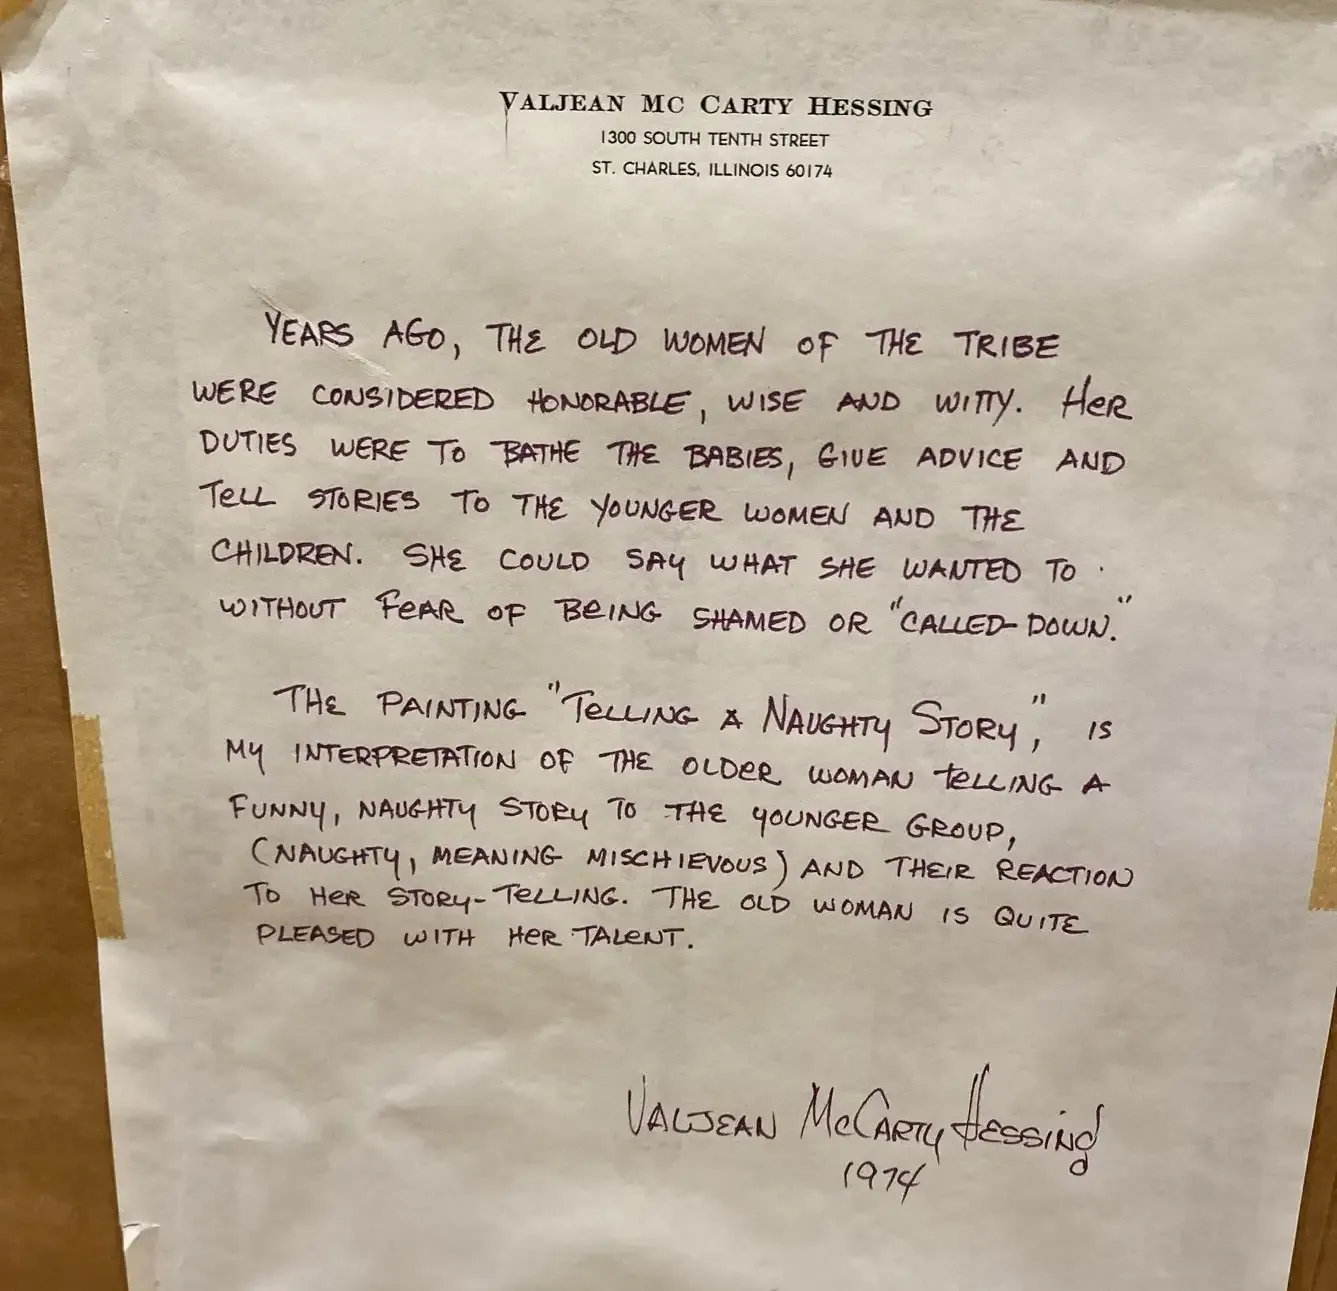 VALJEAN MC CARTY HESSING
1300 SOUTH TENTH STREET
ST. CHARLES, ILLINOIS 60174
YEARS AGO, THE OLD WOMEN OF THE TRIBE
WERE CONSIDERED HONORABLE, WISE AND WITTY. HER
DUTIES WERE TO BATHE THE BABIES, GIVE ADVICE AND
TELL STORIES TO THE YOUNGER WOMEN AND THE
CHILDREN. SHE COULD SAY WHAT SHE WANTED TO
WITHOUT FEAR OF BEING SHAMED OR "CALLED-DOWN."
THE PAINTING "TELLING A NAUGHTY STORY", IS
MY INTERPRETATION OF THE OLDER WOMAN TELLING A
FUNNY, NAUGHTY STORY TO THE YOUNGER GROUP,
(NAUGHTY, MEANING MISCHIEVOUS) AND THEIR REACTION
TO HER STORY-TELLING. THE OLD WOMAN IS QUITE
PLEASED WITH HER TALENT.
VALJEAN McCARTY HESSING
1974